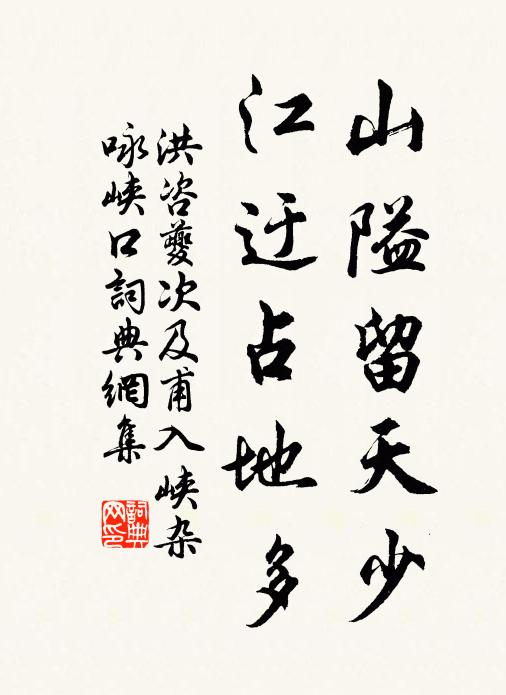 山隘留天少
江迂占地多
洪咨夔次及甫入峡杂
咏峡口詞典網集
詞典网印